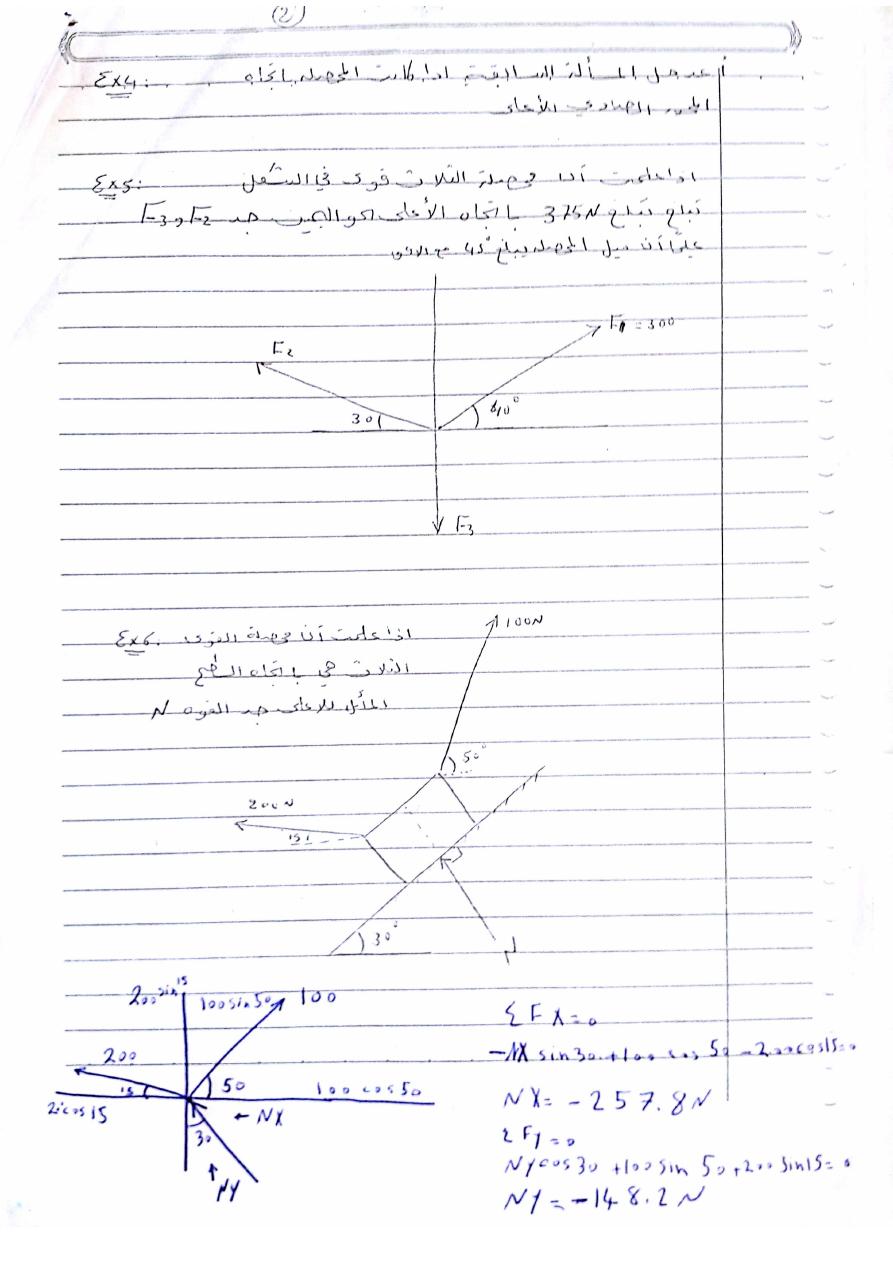 (2)
Ex4: أعد حل المسألة السابقة اذا كانت المحصلة باتجاه
المحور الصادي الأعلى
Ex5: اذا علمت أن محصلة الثلاث قوى في الشكل
تبلغ تبلغ 375N باتجاه الأعلى نحو اليمين جد F2 و F3
علماً أن ميل المحصلة يبلغ 45° مع الافق
F1 = 300
F2
30
40°
F3
Ex6. اذا علمت أن محصلة القوى
الثلاث هي باتجاه السطح
المائل للاعلى جد القوه N
100N
50°
200N
15
30°
N
200 sin 15
100 sin 50
100
200
15
50
100 cos 50
200 cos 15
← NX
30
↑ NY
Σ F X = 0
-NX sin 30 + 100 cos 50 - 200 cos 15 = 0
NX = - 257.8 N
Σ Fy = 0
Ny cos 30 + 100 sin 50 + 200 sin 15 = 0
NY = - 148.2 N